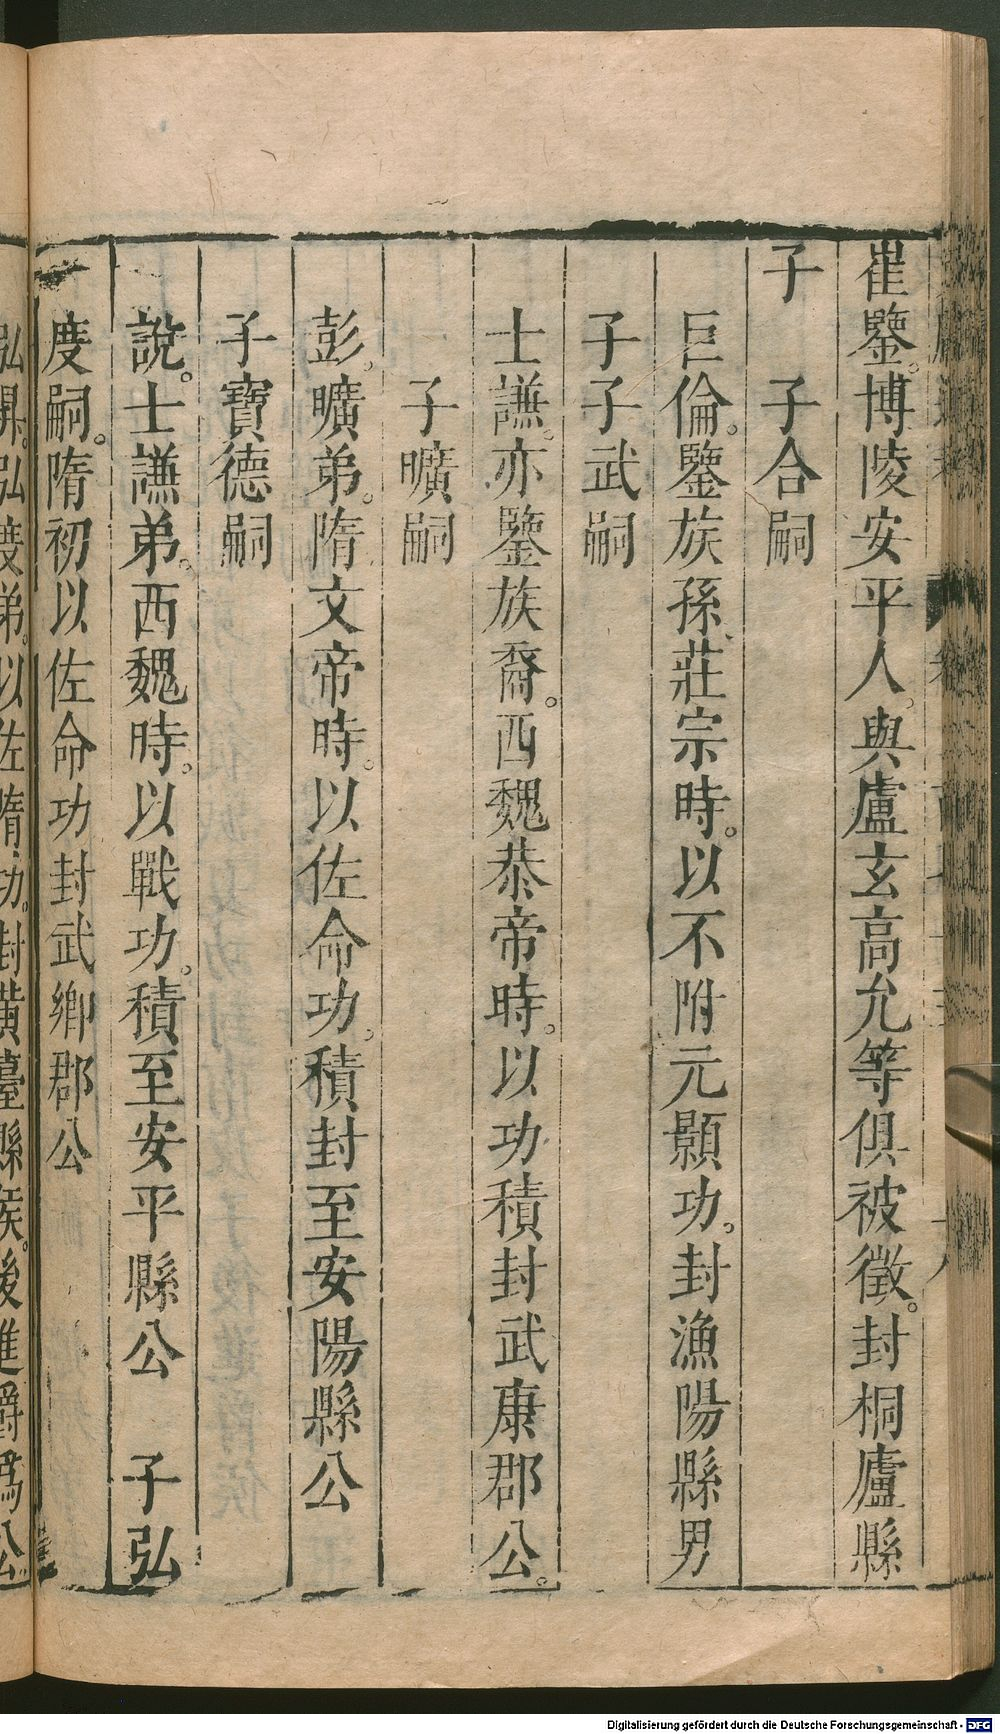 崔鑒。博陵安平人。與盧玄高允等俱被徵。封桐廬縣
子　子合嗣
巨倫。鑒族孫、莊宗時。以不附元顥功。封漁陽縣男
子子武嗣
士謙。亦鑒族裔。西魏恭帝時。以功積封武康郡公。
子曠嗣
彭。曠弟。隋文帝時。以佐命功。積封至安陽縣公
子寶德嗣
說。士謙弟。西魏時。以戰功。積至安平縣公　子弘
度嗣。隋初以佐命功封武鄉郡公
弘昇。弘度弟。以佐隋功。封黃臺縣侯。後進爵爲公
Digitalisierung gefördert durch die Deutsche Forschungsgemeinschaft - DFG